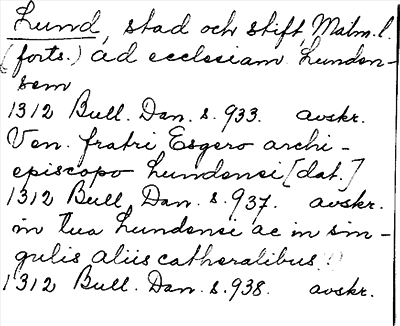 Lund, stad och stift, Malm. l.
(forts.) ad ecclesiam Lunden-
sem
1312 Bull. Dan. s. 933. avskr.
Ven. fratri Esgero archi-
episcopo Lundensi [dat.]
1312 Bull. Dan. s. 937. avskr.
in tua Lundensi ac in sin-
gulis aliis catheralibus (!)
1312 Bull. Dan. s. 938. avskr.